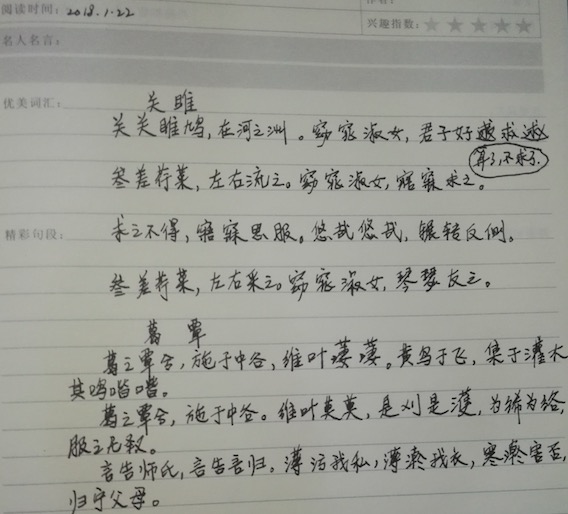 阅读时间：2018.1.22
兴趣指数：★★★★★
名人名言：
优美词汇：
关雎
关关雎鸠，在河之洲。窈窕淑女，君子好逑求逑
算了，不求了。
参差荇菜，左右流之。窈窕淑女，寤寐求之。
精彩句段：
求之不得，寤寐思服。悠哉悠哉，辗转反侧。
参差荇菜，左右采之。窈窕淑女，琴瑟友之。
葛覃
葛之覃兮，施于中谷，维叶萋萋。黄鸟于飞，集于灌木
其鸣喈喈。
葛之覃兮，施于中谷。维叶莫莫，是刈是濩，为絺为绤，
服之无斁。
言告师氏，言告言归。薄污我私，薄澣我衣，害澣害否，
归宁父母。